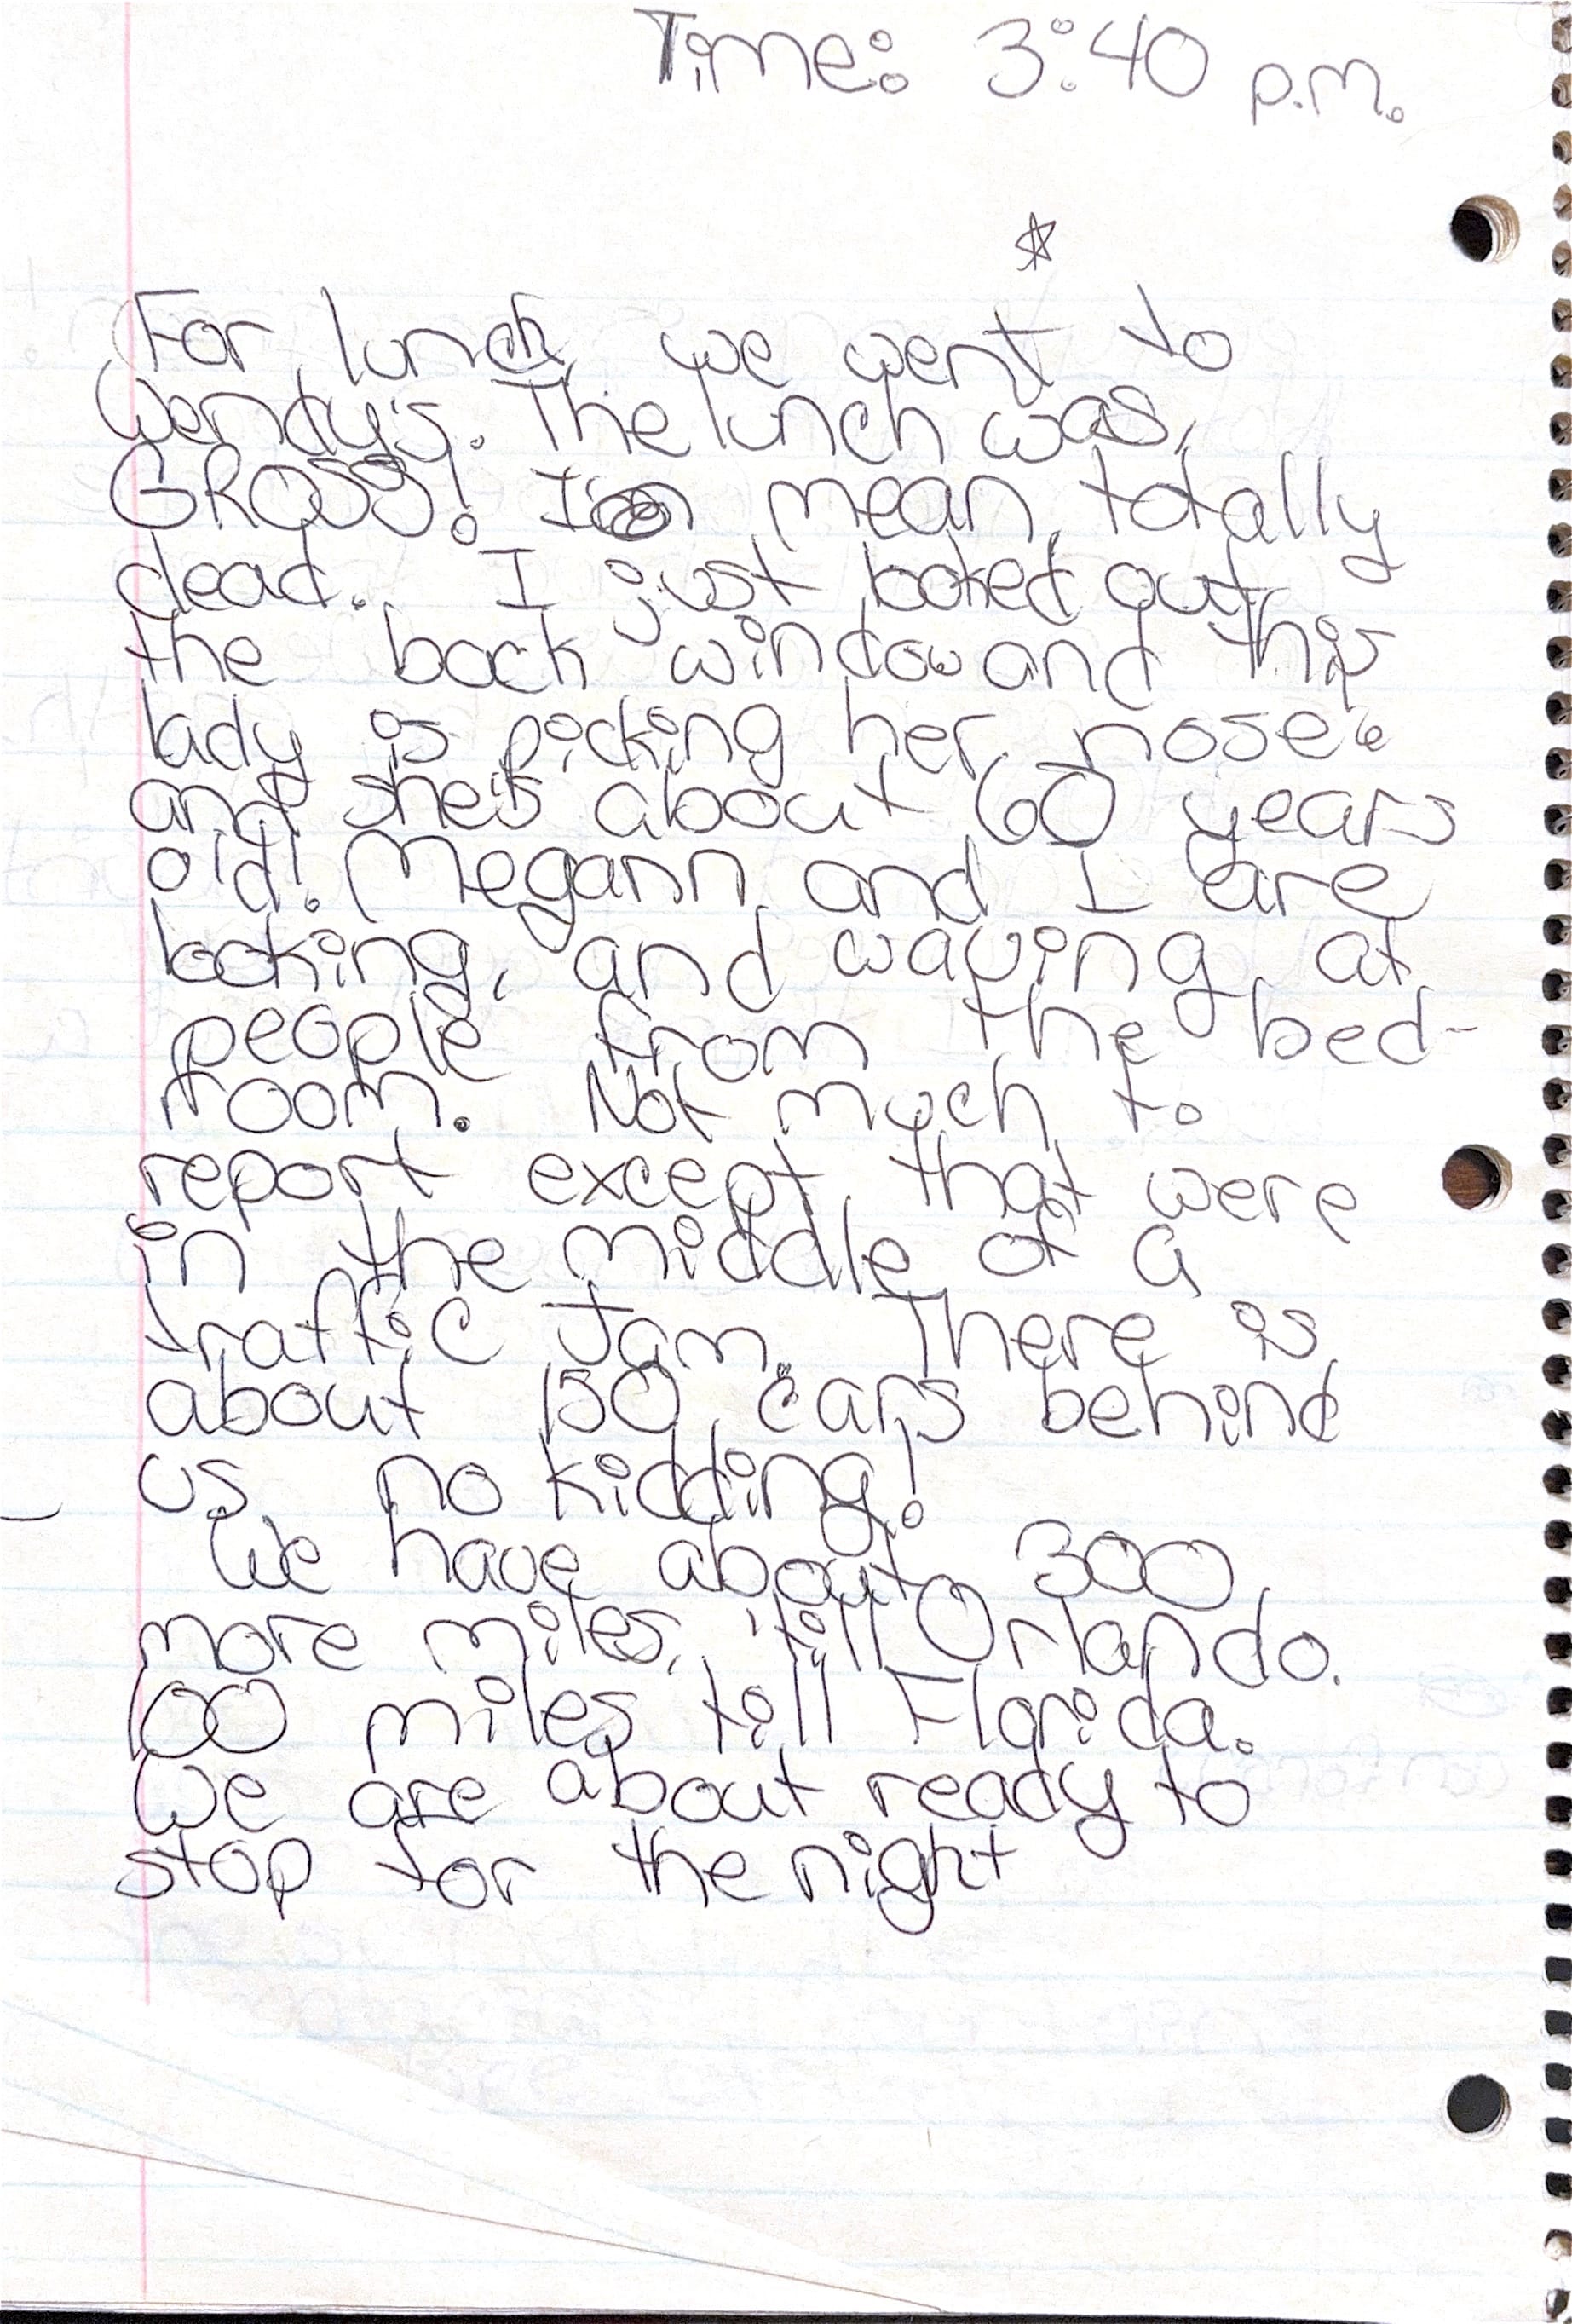 Time: 3:40 p.m.
For lunch we went to
Wendy's. The lunch was,
GROSS! I mean totally
dead. I just looked out
the back window and this
lady is picking her nose
and she's about 60 years
old! Megann and I are
looking, and waving at
people from the bed-
room. Not much to
report except that were
in the middle of a
traffic Jam. There is
about 150 cars behind
us no kidding!
We have about 300
more miles, 'till Orlando.
100 miles till Florida.
We are about ready to
stop for the night